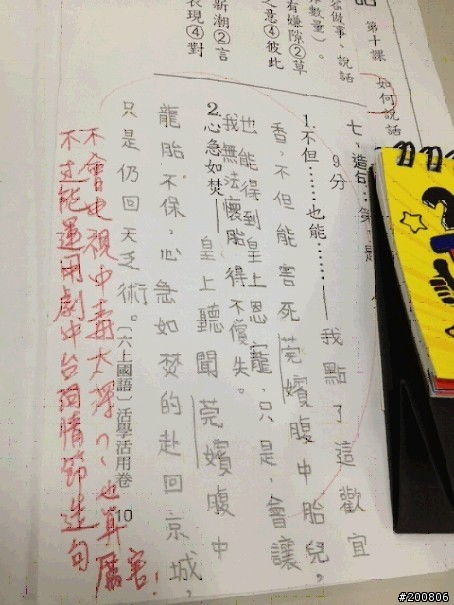 第十課 如何說話
做事、說話
數量)。
有嫌隙②草
之意④彼此
新潮②言
表現④對
七、造句：
9分
1.不但……也能……──我點了這歡宜
香，不但能害死莞嬪腹中胎兒，
也能得到皇上恩寵，只是，會讓
我無法懷胎，得不償失。
2.心急如焚──皇上聽聞莞嬪腹中
龍胎不保，心急如焚的赴回京城，
只是仍回天乏術。
〔六上國語〕活學活用卷 10
不會电視中毒太深ㄇ、
不過能運用劇中台詞情節造句
也算厲害！
#200806